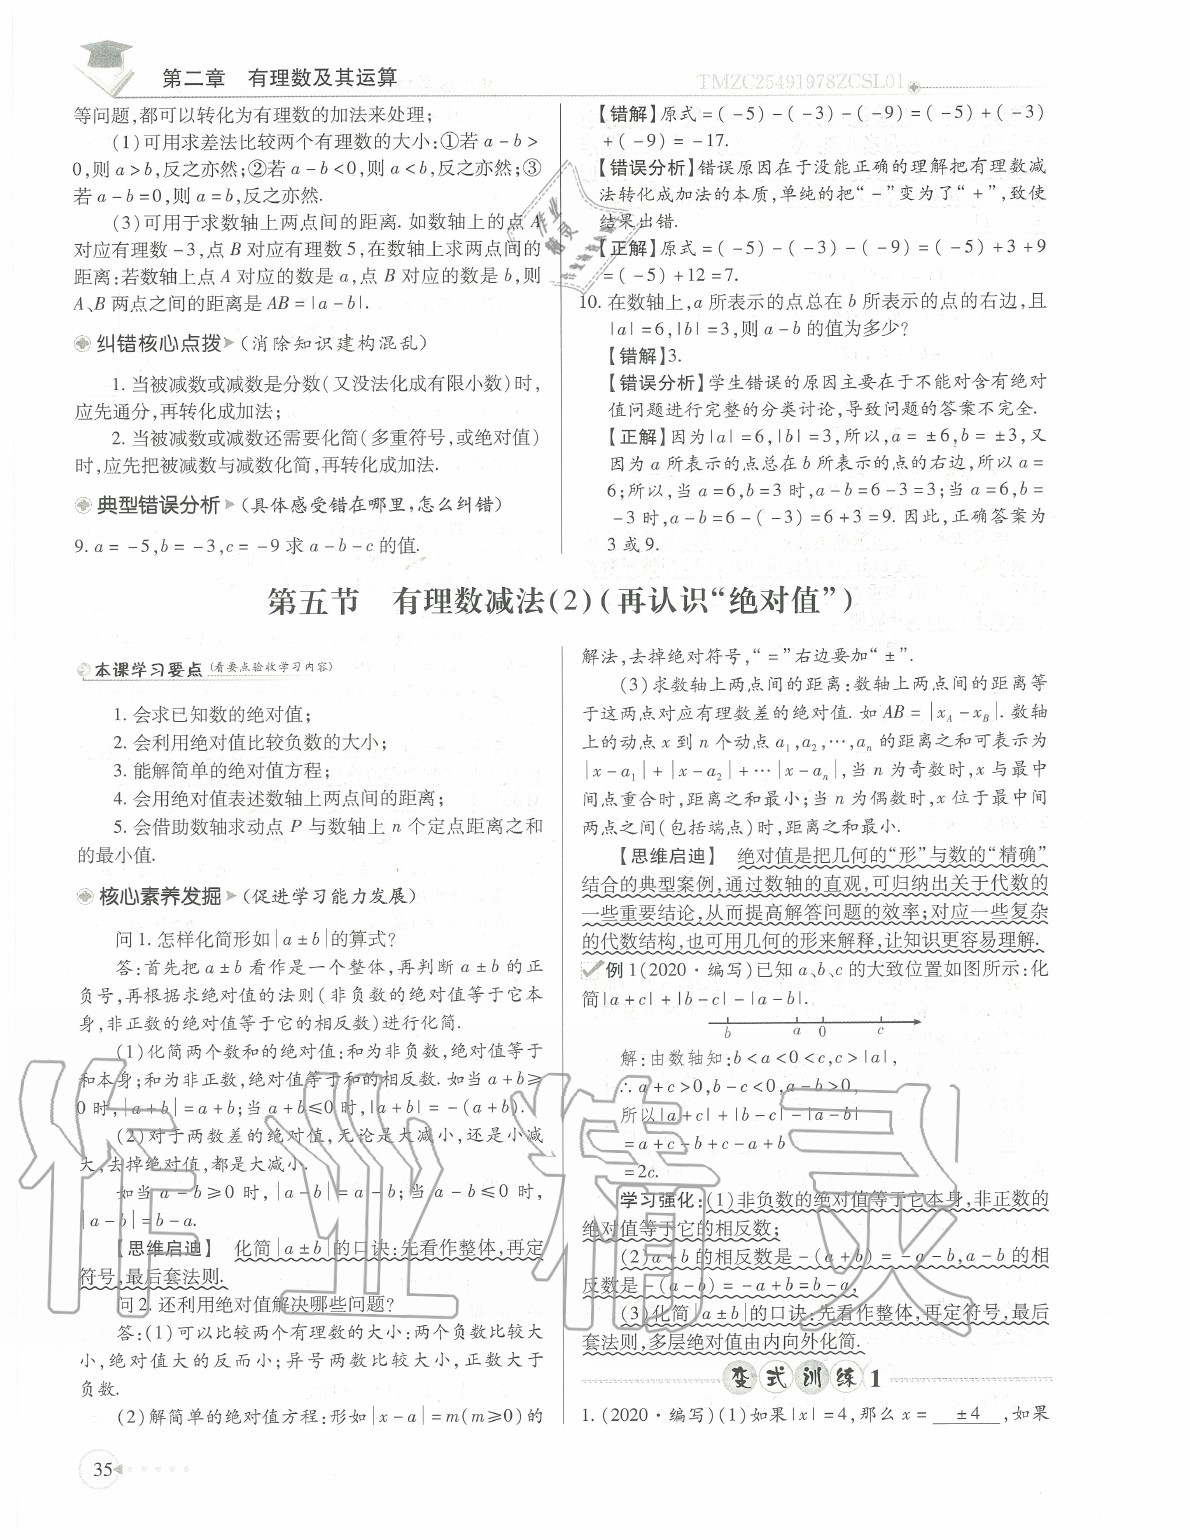 第二章　有理数及其运算
TMZC25491978ZCSL01
等问题,都可以转化为有理数的加法来处理;
(1)可用求差法比较两个有理数的大小:①若 a－b＞
0,则 a＞b,反之亦然;②若 a－b＜0,则 a＜b,反之亦然;③
若 a－b＝0,则 a＝b,反之亦然.
(3)可用于求数轴上两点间的距离. 如数轴上的点 A
对应有理数－3,点 B 对应有理数 5,在数轴上求两点间的
距离:若数轴上点 A 对应的数是 a,点 B 对应的数是 b,则
A、B 两点之间的距离是 AB＝|a－b|.
纠错核心点拨 (消除知识建构混乱)
1. 当被减数或减数是分数(又没法化成有限小数)时,
应先通分,再转化成加法;
2. 当被减数或减数还需要化简(多重符号,或绝对值)
时,应先把被减数与减数化简,再转化成加法.
典型错误分析 (具体感受错在哪里,怎么纠错)
9. a＝－5,b＝－3,c＝－9 求 a－b－c 的值.
【错解】原式＝(－5)－(－3)－(－9)＝(－5)＋(－3)
＋(－9)＝－17.
【错误分析】错误原因在于没能正确的理解把有理数减
法转化成加法的本质,单纯的把“－”变为了“＋”,致使
结果出错.
【正解】原式＝(－5)－(－3)－(－9)＝(－5)＋3＋9
＝(－5)＋12＝7.
10. 在数轴上,a 所表示的点总在 b 所表示的点的右边,且
|a|＝6,|b|＝3,则 a－b 的值为多少?
【错解】3.
【错误分析】学生错误的原因主要在于不能对含有绝对
值问题进行完整的分类讨论,导致问题的答案不完全.
【正解】因为|a|＝6,|b|＝3,所以,a＝±6,b＝±3,又
因为 a 所表示的点总在 b 所表示的点的右边,所以 a＝
6;所以,当 a＝6,b＝3 时,a－b＝6－3＝3;当 a＝6,b＝
－3 时,a－b＝6－(－3)＝6＋3＝9. 因此,正确答案为
3 或 9.
第五节　有理数减法(2)(再认识“绝对值”)
本课学习要点 (看要点验收学习内容)
1. 会求已知数的绝对值;
2. 会利用绝对值比较负数的大小;
3. 能解简单的绝对值方程;
4. 会用绝对值表述数轴上两点间的距离;
5. 会借助数轴求动点 P 与数轴上 n 个定点距离之和
的最小值.
核心素养发掘 (促进学习能力发展)
问 1. 怎样化简形如|a±b|的算式?
答:首先把 a±b 看作是一个整体,再判断 a±b 的正
负号,再根据求绝对值的法则(非负数的绝对值等于它本
身,非正数的绝对值等于它的相反数)进行化简.
(1)化简两个数和的绝对值:和为非负数,绝对值等于
和本身;和为非正数,绝对值等于和的相反数. 如当 a＋b≥
0 时,|a＋b|＝a＋b;当 a＋b≤0 时,|a＋b|＝－(a＋b).
(2)对于两数差的绝对值,无论是大减小,还是小减
大,去掉绝对值,都是大减小.
如当 a－b≥0 时,|a－b|＝a－b;当 a－b≤0 时,
|a－b|＝b－a.
【思维启迪】 化简|a±b|的口诀:先看作整体,再定
符号,最后套法则.
问 2. 还利用绝对值解决哪些问题?
答:(1)可以比较两个有理数的大小:两个负数比较大
小,绝对值大的反而小;异号两数比较大小,正数大于
负数.
(2)解简单的绝对值方程:形如|x－a|＝m(m≥0)的
解法,去掉绝对符号,“＝”右边要加“±”.
(3)求数轴上两点间的距离:数轴上两点间的距离等
于这两点对应有理数差的绝对值. 如 AB＝|x_A－x_B|. 数轴
上的动点 x 到 n 个动点 a₁,a₂,…,aₙ 的距离之和可表示为
|x－a₁|＋|x－a₂|＋…|x－aₙ|,当 n 为奇数时,x 与最中
间点重合时,距离之和最小;当 n 为偶数时,x 位于最中间
两点之间(包括端点)时,距离之和最小.
【思维启迪】 绝对值是把几何的“形”与数的“精确”
结合的典型案例,通过数轴的直观,可归纳出关于代数的
一些重要结论,从而提高解答问题的效率;对应一些复杂
的代数结构,也可用几何的形来解释,让知识更容易理解.
例 1(2020·编写)已知 a、b、c 的大致位置如图所示:化
简|a＋c|＋|b－c|－|a－b|.
b a 0 c
解:由数轴知:b＜a＜0＜c,c＞|a|,
∴a＋c＞0,b－c＜0,a－b＞0,
所以|a＋c|＋|b－c|－|a－b|
＝a＋c－b＋c－a＋b
＝2c.
学习强化:(1)非负数的绝对值等于它本身,非正数的
绝对值等于它的相反数;
(2)a＋b 的相反数是－(a＋b)＝－a－b,a－b 的相
反数是－(a－b)＝－a＋b＝b－a,
(3)化简|a±b|的口诀:先看作整体,再定符号,最后
套法则,多层绝对值由内向外化简.
变式训练 1
1. (2020·编写)(1)如果|x|＝4,那么 x＝ ±4 ,如果
35
作业精灵
作业精灵